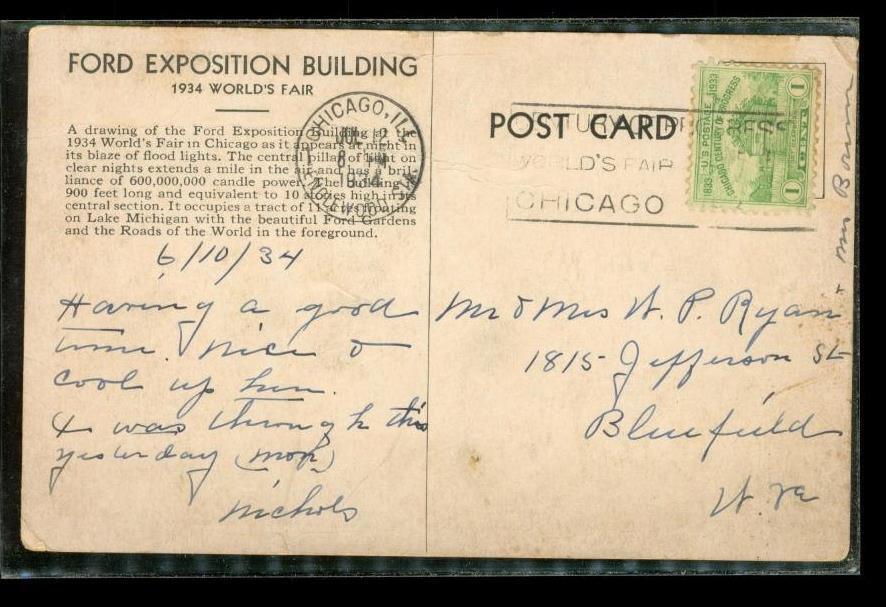 FORD EXPOSITION BUILDING
1934 WORLD'S FAIR
A drawing of the Ford Exposition Building at the
1934 World's Fair in Chicago as it appears at night in
its blaze of flood lights. The central pillar of light on
clear nights extends a mile in the air and has a bril-
liance of 600,000,000 candle power. The building is
900 feet long and equivalent to 10 stories high in its
central section. It occupies a tract of 11 acres fronting
on Lake Michigan with the beautiful Ford Gardens
and the Roads of the World in the foreground.
CHICAGO, ILL.
JUL 12
1934
ENGLEWOOD STA.
6/10/34
Having a good
time. Nice &
cool up here.
I was through this
yesterday (Mon)
Nichols
POST CARD
A CENTURY OF PROGRESS
WORLD'S FAIR
CHICAGO
U.S. POSTAGE
1833 CHICAGO CENTURY OF PROGRESS 1933
1
1
Mr & Mrs W. P. Ryan
+ Mrs
1815 Jefferson St
Bluefield
W. Va